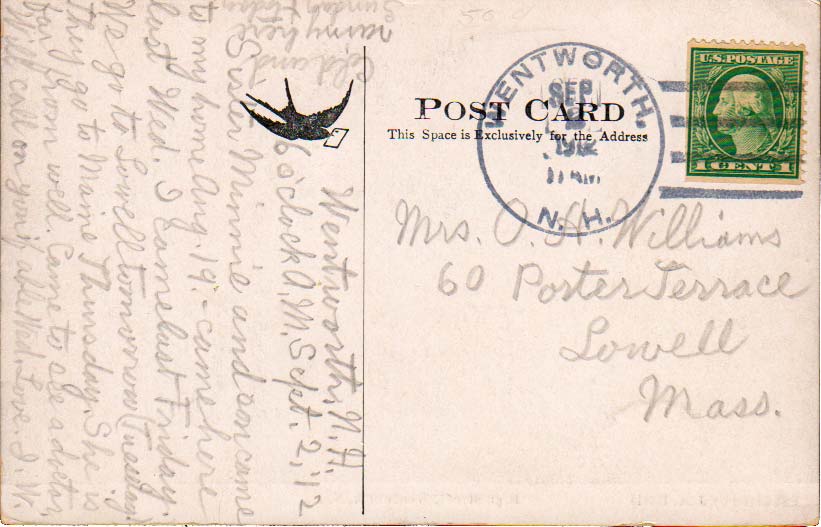 Wentworth, N.H.
6 o'clock A.M. Sept. 2, '12
Sister Minnie and son came
to my house Aug. 19. - came here
last Wed. I came last Friday.
We go to Lowell tomorrow (Tuesday)
They go to Maine Thursday. She is
far from well. Came to see a doctor.
Will call on you if able Wed. Love. I. W.
Cold and
rainy here
Sunday & today
POST CARD
This Space is Exclusively for the Address
WENTWORTH,
SEP
2
1912
11 AM
N. H.
U.S. POSTAGE
1 CENT 1
Mrs. O. A. Williams
60 Porter Terrace
Lowell
Mass.